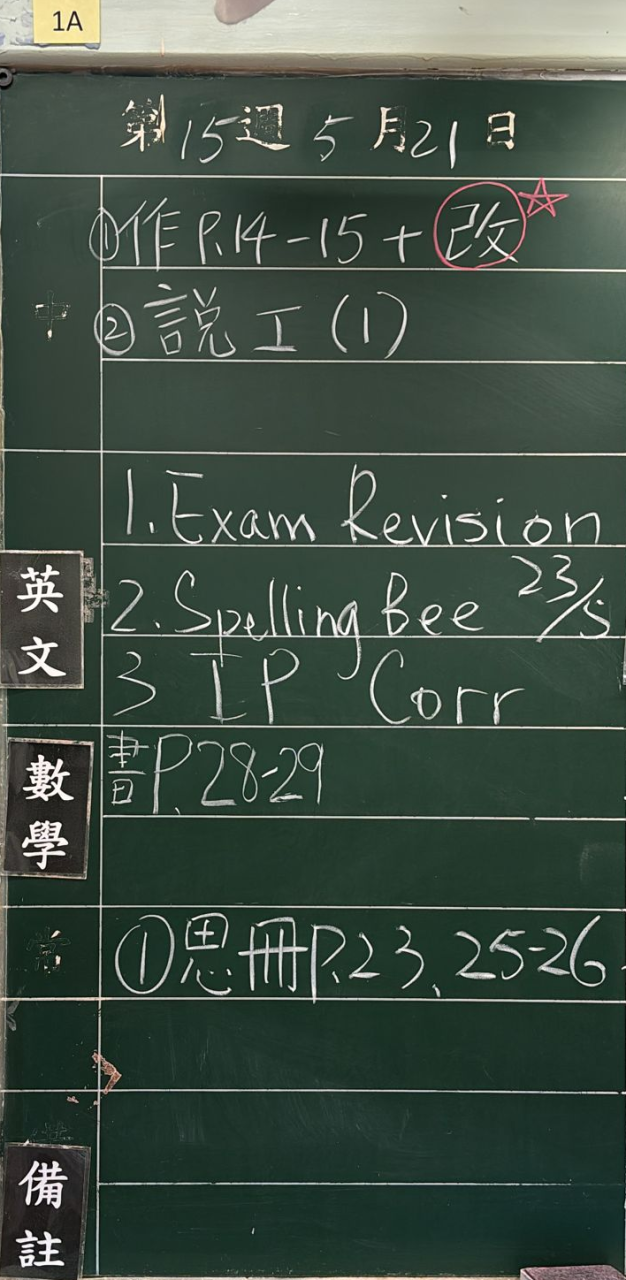 1A
第15週 5月21日
中
①作P.14-15+改
②説工(1)
英文
1. Exam Revision
2. Spelling Bee 23/5
3 IP Corr
數學
書P.28-29
常
①思冊P.23、25-26
備註